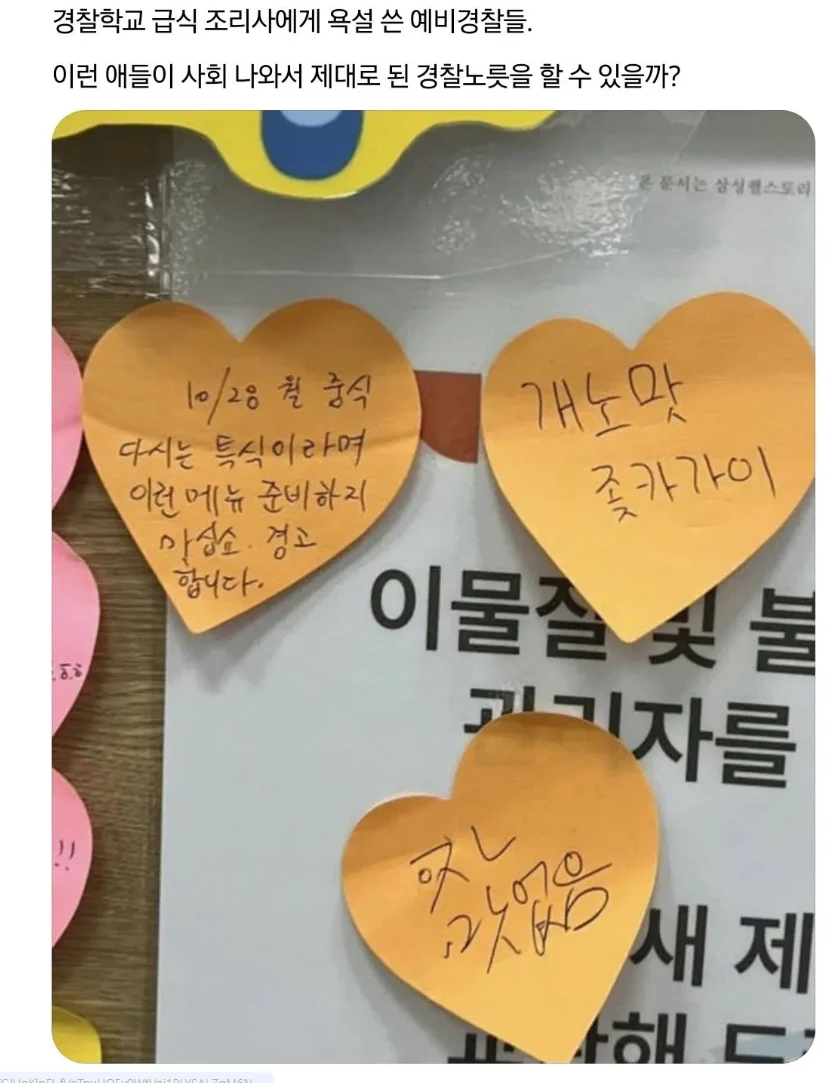 경찰학교 급식 조리사에게 욕설 쓴 예비경찰들.
이런 애들이 사회 나와서 제대로 된 경찰노릇을 할 수 있을까?
본 문서는 삼성웰스토리
10/28 월 중식
다시는 특식이라며
이런 메뉴 준비하지
마십쇼. 경고
합니다.
개노맛
좆카가이
이물질 및 불
관리자를
맛없음
새 제
!!